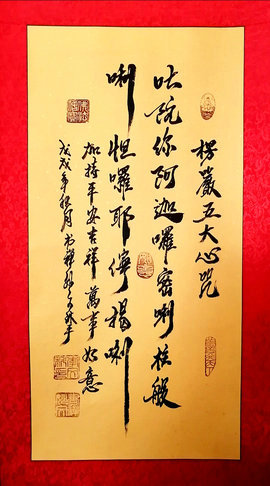 楞嚴五大心咒
叱陀你阿迦囉密唎柱般
唎怛囉耶儜揭唎
加持平安吉祥萬事如意
戊戌年秋月